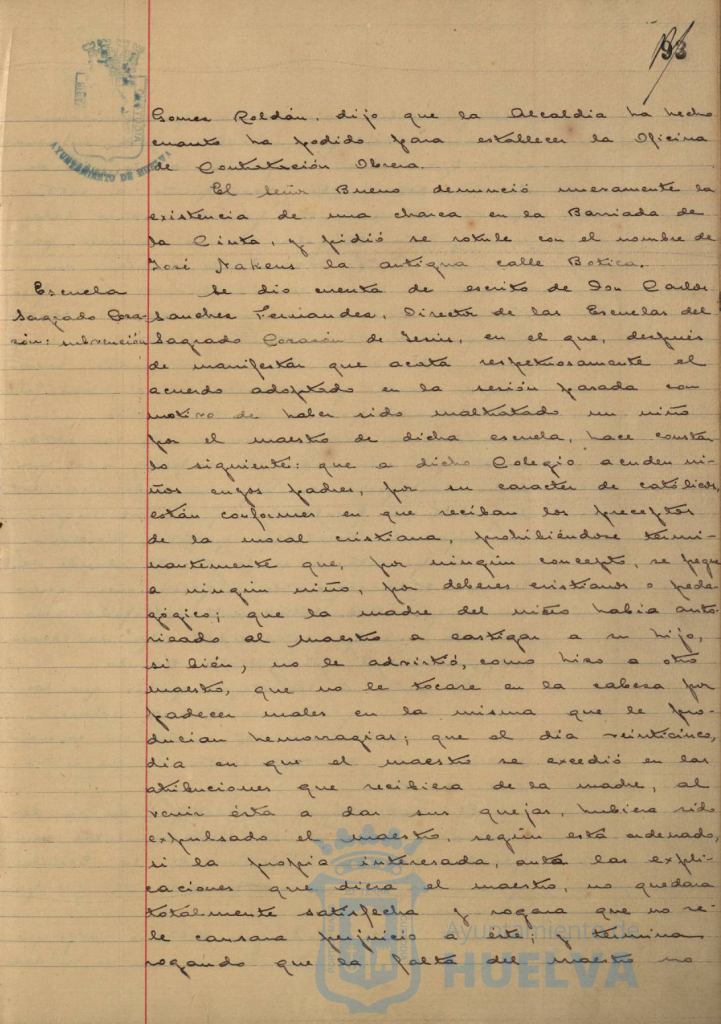 193
AYUNTAMIENTO DE HUELVA
Gomez Roldán, dijo que la Alcaldia ha hecho
cuanto ha podido para establecer la Oficina
de Contratación Obrera.
El señor Bueno denunció nuevamente la
existencia de una charca en la Barriada de
la Cinta, y pidió se rotule con el nombre de
José Nakens la antigua calle Botica.
Escuela
Sagrado Cora-
zón: subvención
Se dio cuenta de escrito de Don Carlos
Sanchez Fernandez, Director de las Escuelas del
Sagrado Corazón de Jesús, en el que, después
de manifestar que acata respetuosamente el
acuerdo adoptado en la sesión pasada con
motivo de haber sido maltratado un niño
por el maestro de dicha escuela, hace constar
lo siguiente: que a dicho Colegio acuden ni-
ños cuyos padres, por su caracter de católicos,
están conformes en que reciban los preceptos
de la moral cristiana, prohibiéndose termi-
nantemente que, por ningún concepto, se pegue
a ningún niño, por deberes cristianos o peda-
gógico; que la madre del niño habia auto-
rizado al maestro a castigar a su hijo,
si bién, no le advirtió, como hizo a otro
maestro, que no le tocare en la cabeza por
padecer males en la misma que le pro-
ducian hemorragias; que el dia veinticinco,
dia en que el maestro se excedió en las
atribuciones que recibiera de la madre, al
venir ésta a dar sus quejas, hubiera sido
expulsado el maestro, según está ordenado,
si la propia interesada, ante las expli-
caciones que diera el maestro, no quedara
totalmente satisfecha y rogara que no se
le causara perjuicio a éste; y termina
rogando que la falta del maestro no
Ayuntamiento de
HUELVA